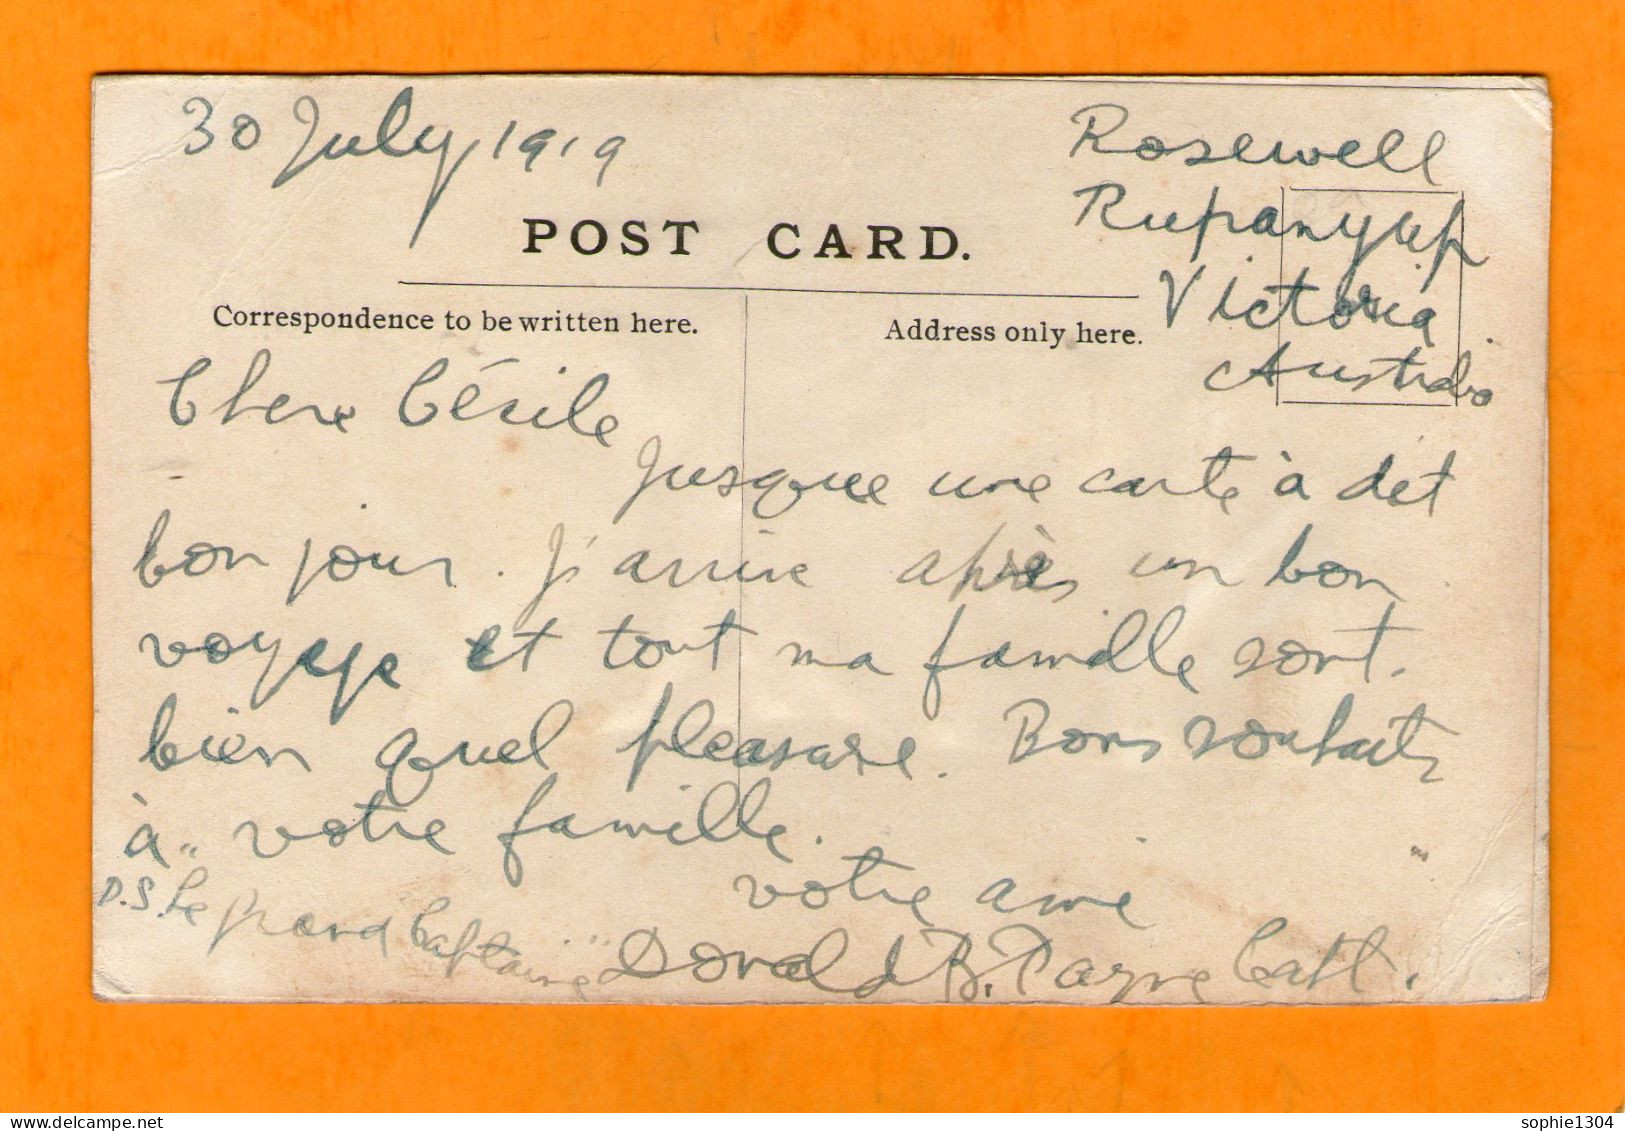 30 July 1919
Rosewell
Rupanyup
Victoria
Australia
POST CARD.
Correspondence to be written here.
Address only here.
Chere Cécile
Jusque une carte à dit
bon jour. J'arrive après un bon
voyage et tout ma famille sont
bien quel pleasare. Bons souhaits
à votre famille.
votre ami
D.S. Le grand Captaine"
Donald B. Payne Capt.
sophie1304